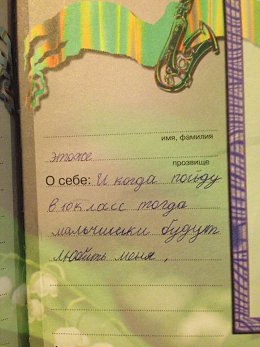 имя, фамилия
этоже
прозвище
О себе: И когда пойду
в 10 класс тогда
мальчишки будут
любить меня.